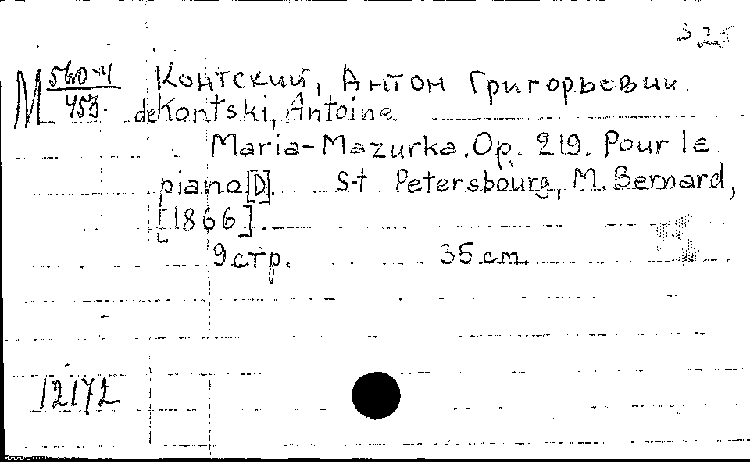 3 25
М 560-4/453. Контский, Антон Григорьевич.
de Kontski, Antoine
Maria-Mazurka. Op. 219. Pour le
piano [D]. S-t Petersbourg, M. Bernard,
[1866].
9 стр. 35 cm.
12172